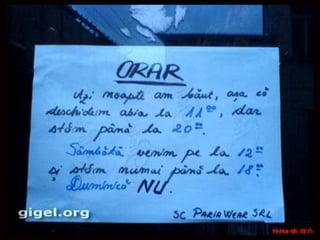 ORAR
Azi noapte am băut, așa că
deschidem abia la 11⁰⁰, dar
stăm până la 20⁰⁰.
Sâmbătă venim pe la 12⁰⁰
și stăm numai până la 18⁰⁰.
Duminică NU.
SC PARIA WEAR SRL
gigel.org